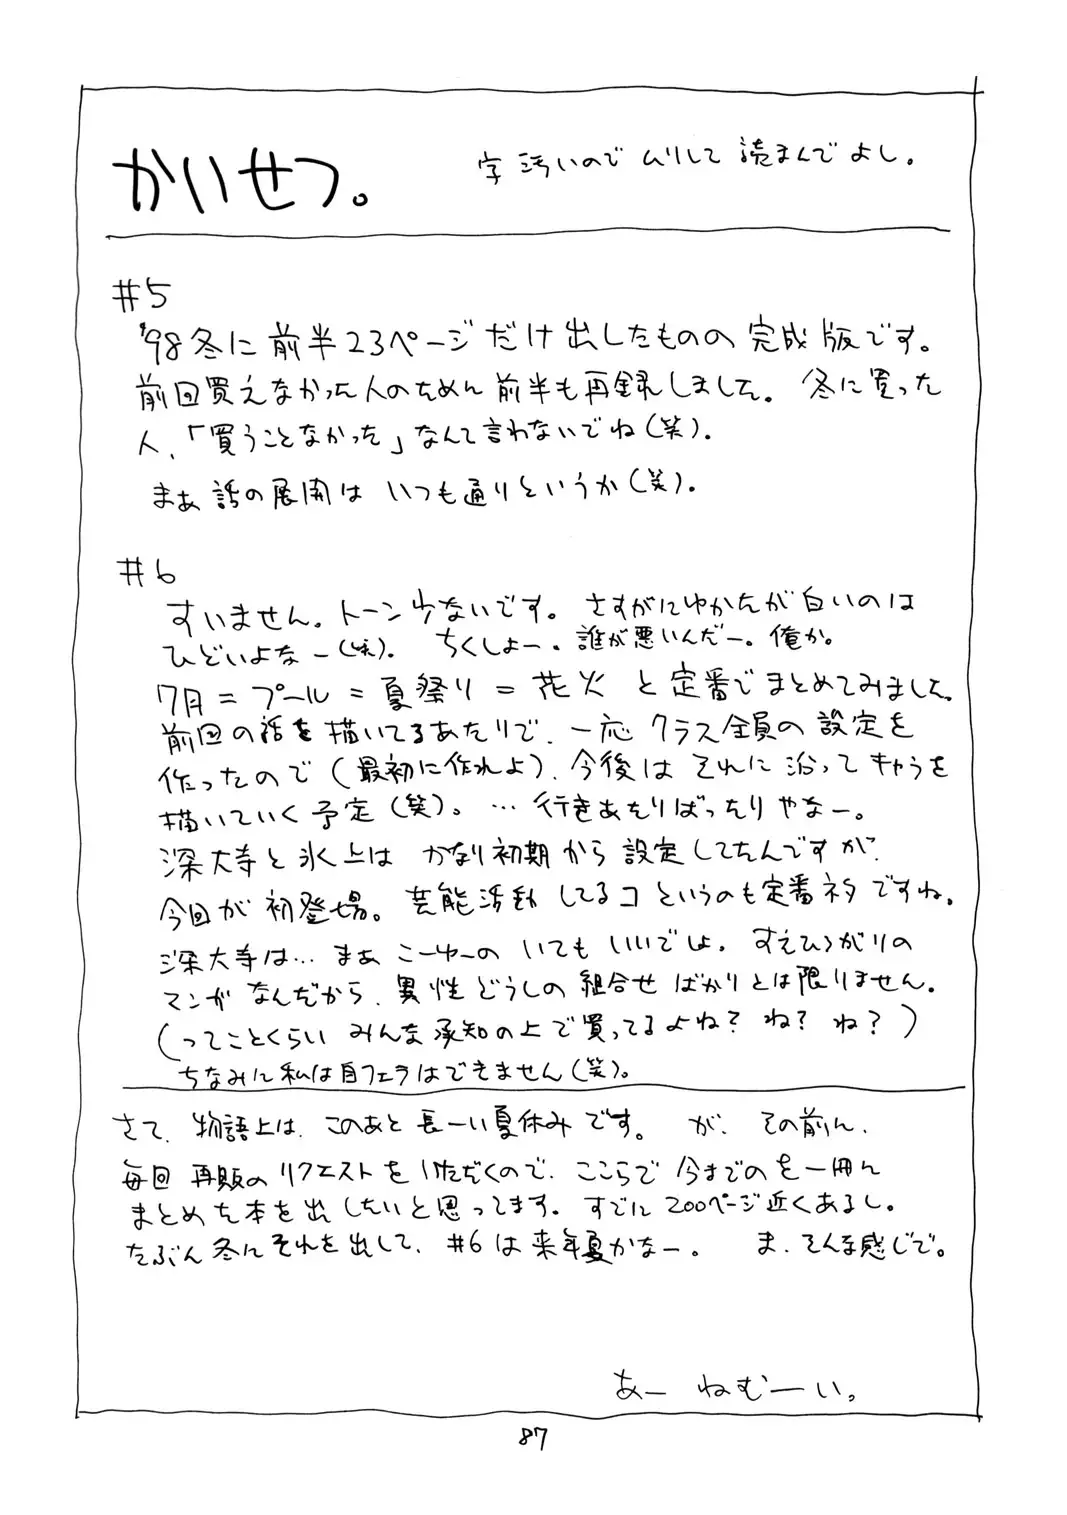 かいせつ。
字汚いのでムリして読まんでよし。
#5
'98冬に前半23ページだけ出したものの完成版です。
前回買えなかった人のために前半も再録しました。冬に買った
人、「買うことなかった」なんて言わないでね(笑)。
まあ話の展開はいつも通りというか(笑)。
#6
すいません。トーン少ないです。さすがにゆかたが白いのは
ひどいよなー(笑)。ちくしょー。誰が悪いんだー。俺か。
7月=プール=夏祭り=花火と定番でまとめてみました。
前回の話を描いてるあたりで、一応クラス全員の設定を
作ったので(最初に作れよ)、今後はそれに沿ってキャラを
描いていく予定(笑)。…行きあたりばったりやなー。
深大寺と氷上はかなり初期から設定してたんですが、
今回が初登場。芸能活動してるコというのも定番ネタですね。
深大寺は…まあこーゆーのいてもいいでしょ。すえひろがりの
マンガなんだから、異性どうしの組合せばかりとは限りません。
(ってことくらいみんな承知の上で買ってるよね?ね?ね?)
ちなみに私は自フェラはできません(笑)。
さて、物語上は、このあと長ーい夏休みです。が、その前に、
毎回再販のリクエストをいただくので、ここらで今までのを一冊に
まとめた本を出したいと思ってます。すでに200ページ近くあるし。
たぶん冬にそれを出して、#6は来年夏かなー。ま、そんな感じで。
あー ねむーい。
87